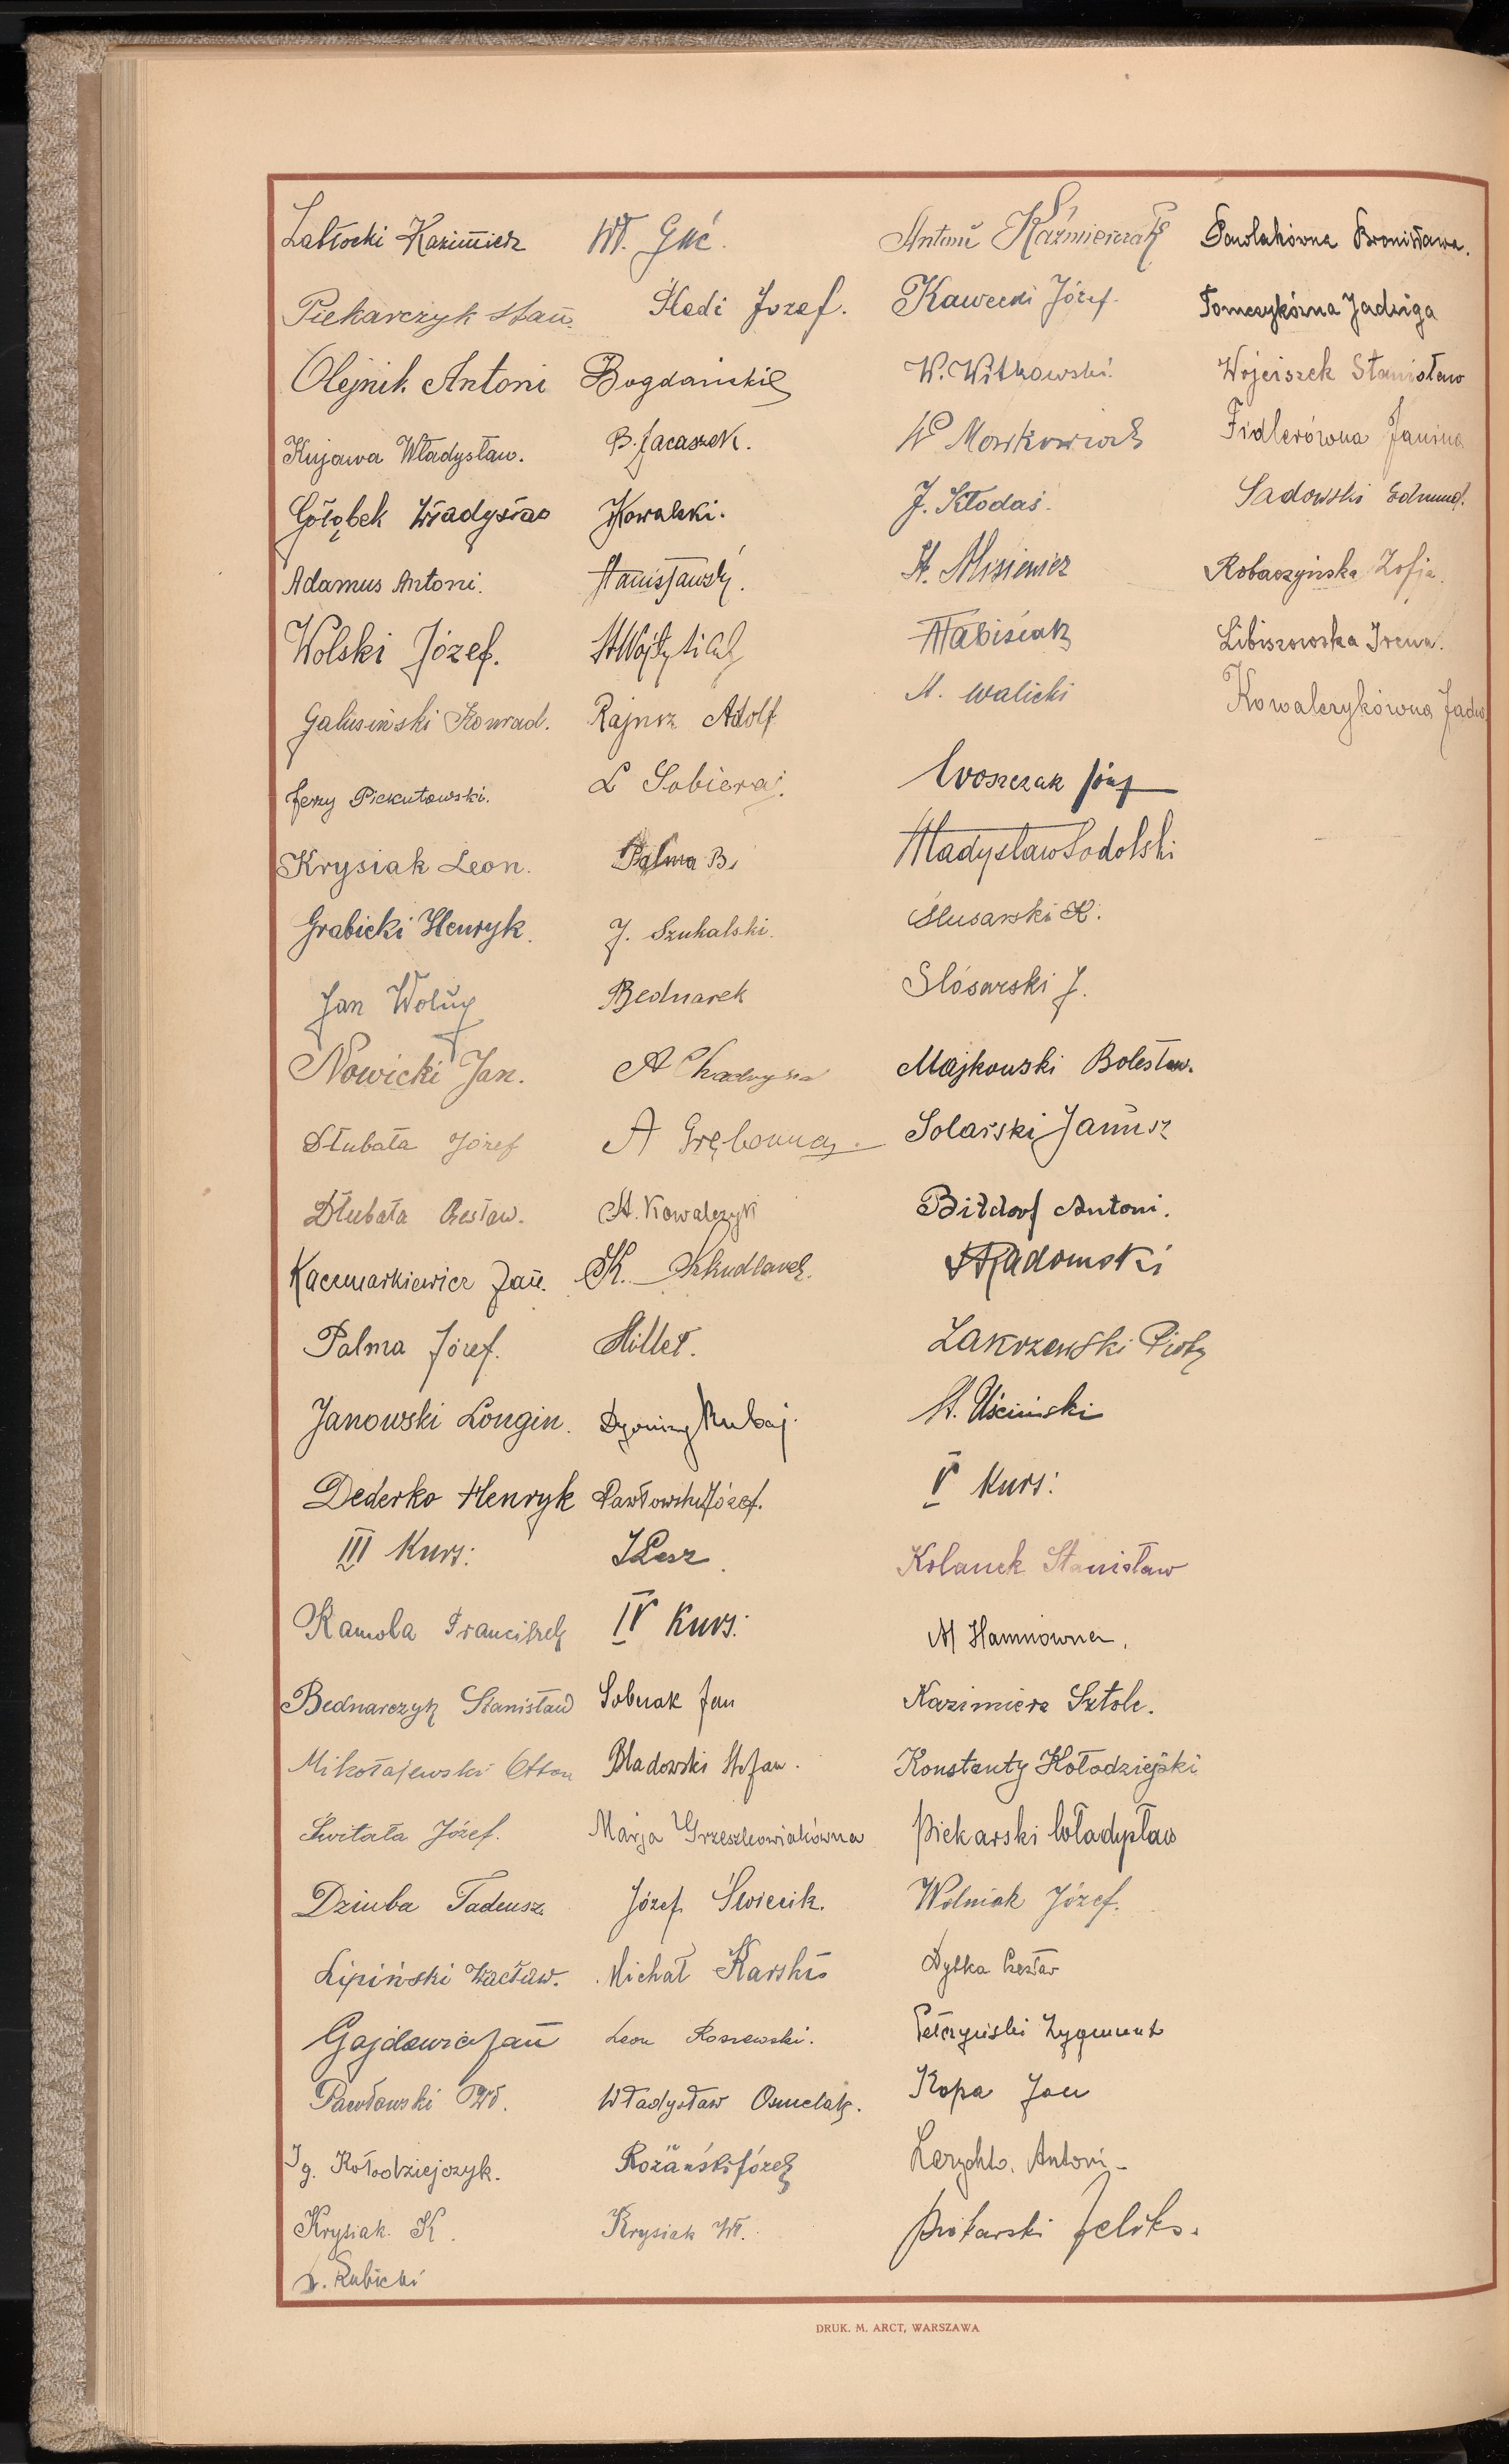 Zabłocki Kazimierz
Piekarczyk Stan.
Olejnik Antoni
Kujawa Władysław.
Gołąbek Władysław
Adamus Antoni.
Wolski Józef.
Galusiński Konrad.
Jerzy Piekutowski.
Krysiak Leon.
Grabicki Henryk.
Jan Woluy
Nowicki Jan.
Dłubała Józef
Dłubała Czesław.
Kaczmarkiewicz Jan.
Palma Józef.
Janowski Longin.
Dederko Henryk
III Kurs:
Kamola Franciszek
Bednarczyk Stanisław
Mikołajewski Otton
Świtała Józef.
Dziuba Tadeusz
Lipiński Wacław.
Gajdowicz Jan
Pawłowski Wł.
Ig. Kołodziejczyk.
Krysiak K.
Rubicki
Wł. Guć.
Śledź Józef.
Bogdański
B. Jacaszek.
Kowalski.
Stanisławski.
Rajnsz Adolf
L Sobieraj.
Palma B.
J. Szukalski.
Bednarek
A
A Grębowna.
St. Kowalczyk
K. Szkudlarek.
Millet.
Dyonizy Rubaj.
Pawłowski Józef.
J Lesz.
IV Kurs:
Sobczak Jan
Bladowski Stefan.
Marja Grzeszkowiakówna
Józef Świecik.
Michał Karski
Leon Rossowski.
Władysław Osmelak.
Rożański Józef
Krysiak Wł.
Antoni Kaźmierczak
Kawecki Józef.
W. Witkowski.
W
J. Kłodaś.
St. Misiewicz
Fabisiak
M. Walicki
Woszczak Józef
Władysław Sodolski
Ślusarski K.
Slósarski J.
Majkowski Bolesław.
Solarski Janusz
Bitdorf Antoni.
St Radomski
Zakrzewski Piotr
St. Uściński
V Kurs:
Kolanek Stanisław
M Hamnowna.
Kazimierz Sztolc.
Konstanty Kołodziejski
Piekarski Władysław
Wolniak Józef.
Dybka Czesław
Pełczyński Zygmunt
Kopa Jan
Antoni
Piekarski Feliks.
Pawlakówna Bronisława.
Tomczykówna Jadwiga
Wojciszek Stanisław
Fidlerówna Janina
Sadowski Edmund.
Robaszyńska Zofja.
Libiszowska Irena.
Kowalczykówna Jadw.
DRUK. M. ARCT, WARSZAWA